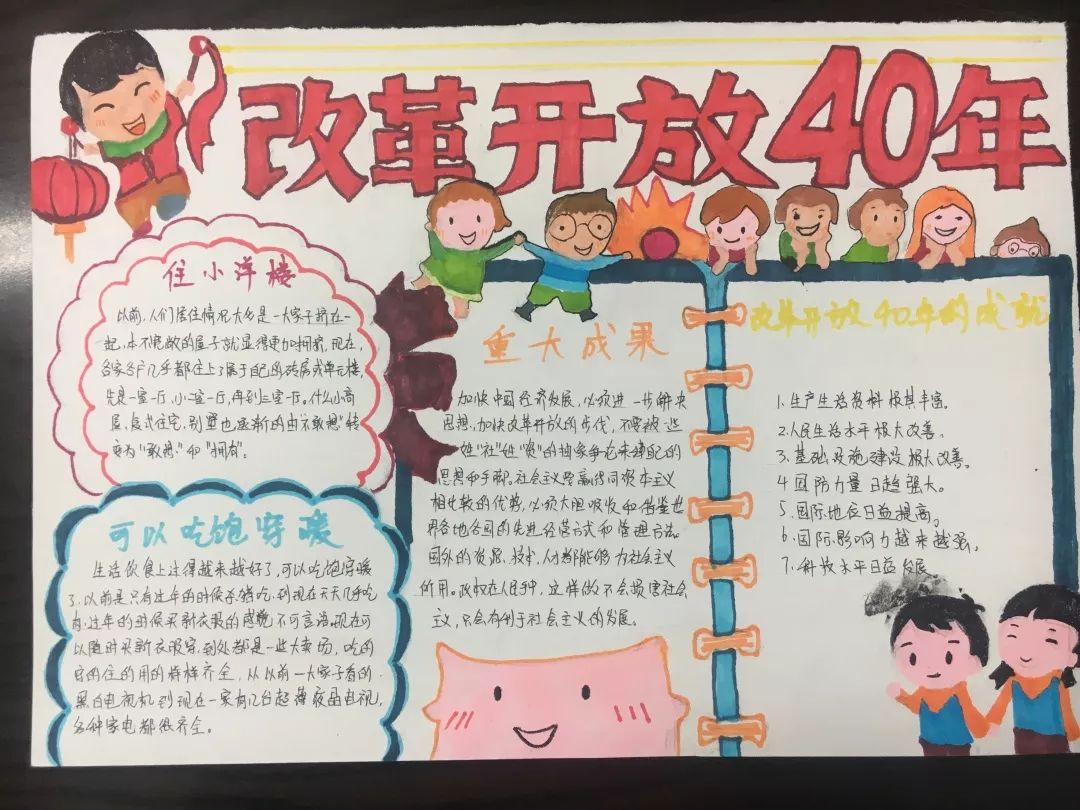 改革开放40年
住小洋楼
以前,人们居住情况大多是一大家子挤在一
起,本不宽敞的屋子就显得更加拥挤,现在,
各家各户几乎都住上了属于自己的砖房或单元楼,
先是一室一厅,小二室一厅,再到三室一厅。什么小高
层、复式住宅、别墅也逐渐的由“不敢想”转
变为“敢想”和“拥有”。
可以吃饱穿暖
生活饮食上过得越来越好了,可以吃饱穿暖
了.以前是只有过年的时候杀猪吃,到现在天天几乎吃
肉,过年的时候买新衣服的感觉不可言语.现在可
以随时买新衣服穿,到处都是一些大卖场,吃的
穿的住的用的样样齐全,从以前一大家子看的
黑白电视机到现在一家有几台超薄液晶电视,
各种家电都很齐全。
重大成果
加快中国经济发展,必须进一步解决
思想,加快改革开放的步伐,不要被
姓“社”姓“资”的抽象争论束缚自己的
思想和手脚。社会主义要赢得同资本主义
相比较的优势,必须大胆吸收和借鉴世
界各地各国的先进经营方式和管理方法。
国外的资源、技术、人才都能够为社会主义
所用。政权在人民手中,这样做不会损害社会
主义,只会有利于社会主义的发展。
改革开放40年的成就
1.生产生活资料极其丰富。
2.人民生活水平极大改善。
3.基础设施建设极大改善。
4.国防力量日趋强大。
5.国际地位日益提高。
6.国际影响力越来越强。
7.科技水平日益发展